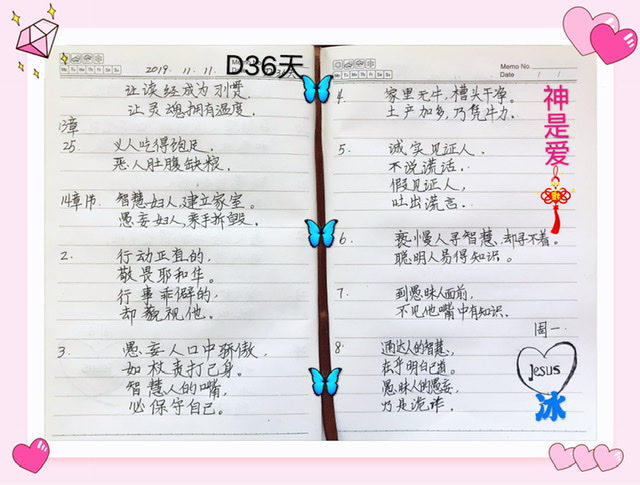 2019. 11. 11.
D36天
让读经成为习惯,
让灵魂拥有温度.
13章
25. 义人吃得饱足,
恶人肚腹缺粮.
14章1节. 智慧妇人,建立家室。
愚妄妇人,亲手拆毁.
2. 行动正直的,
敬畏耶和华。
行事乖僻的,
却藐视他。
3. 愚妄人口中骄傲,
如杖责打己身。
智慧人的嘴,
必保守自己.
Memo No.
Date / /
Mo Tu We Th Fr Sa Su
4. 家里无牛,槽头干净。
土产加多,乃凭牛力.
神是爱
5. 诚实见证人.
不说谎话.
假见证人,
吐出谎言.
6. 亵慢人寻智慧,却寻不着。
聪明人易得知识。
7. 到愚昧人面前,
不见他嘴中有知识.
周一
8 通达人的智慧,
在乎明白己道。
愚昧人的愚妄,
乃是诡诈.
Jesus
冰